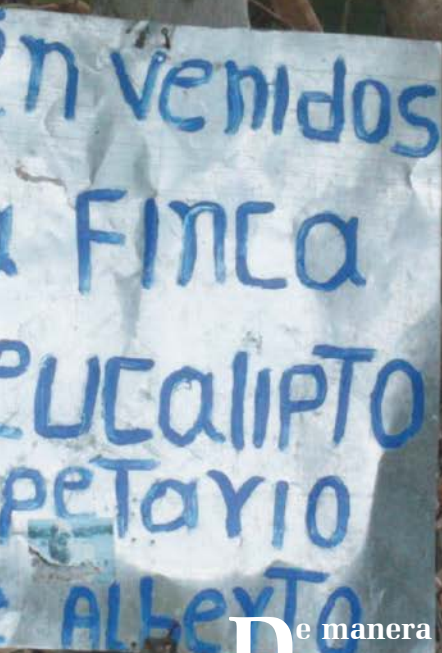 en venidos
a FINCa
eucalIPTO
peTarIO
e ALberTo
De manera